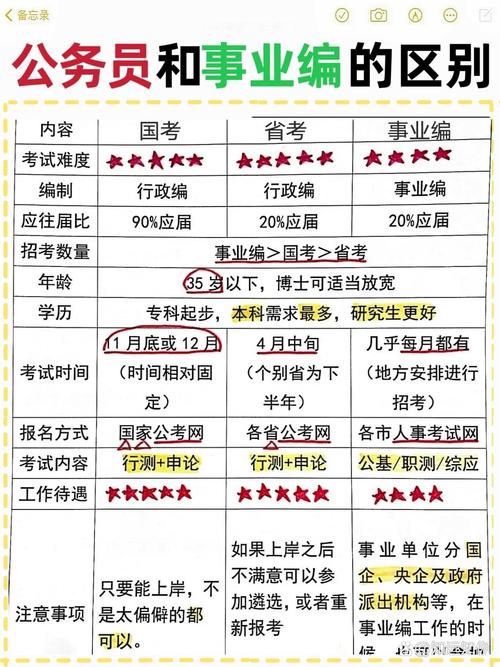 备忘录
公务员和事业编的区别
内容 国考 省考 事业编
考试难度 ★★★★★ ★★★★★ ★★★★
编制 行政编 行政编 事业编
应往届比 90%应届 20%应届 20%应届
招考数量 事业编>国考>省考
年龄 35 岁以下，博士可适当放宽
学历 专科起步，本科需求最多，研究生更好
考试时间
11 月底或 12 月
（时间相对固
定）
4 月中旬
（个别省为下
半年）
几乎每月都有
（地方安排进行
招考）
报名方式 国家公考网 各省公考网 各市人事考试网
考试内容 行测+申论 行测+申论 公基/职测/综应
工作待遇 ★★★★★ ★★★★★ ★★★★
注意事项
只要能上岸，不
是太偏僻的都
可以。
如果上岸之后
不满意可以参
加遴选，或者重
新报考
事业单位分国
企、央企及政府
派出机构等，在
事业编工作的时